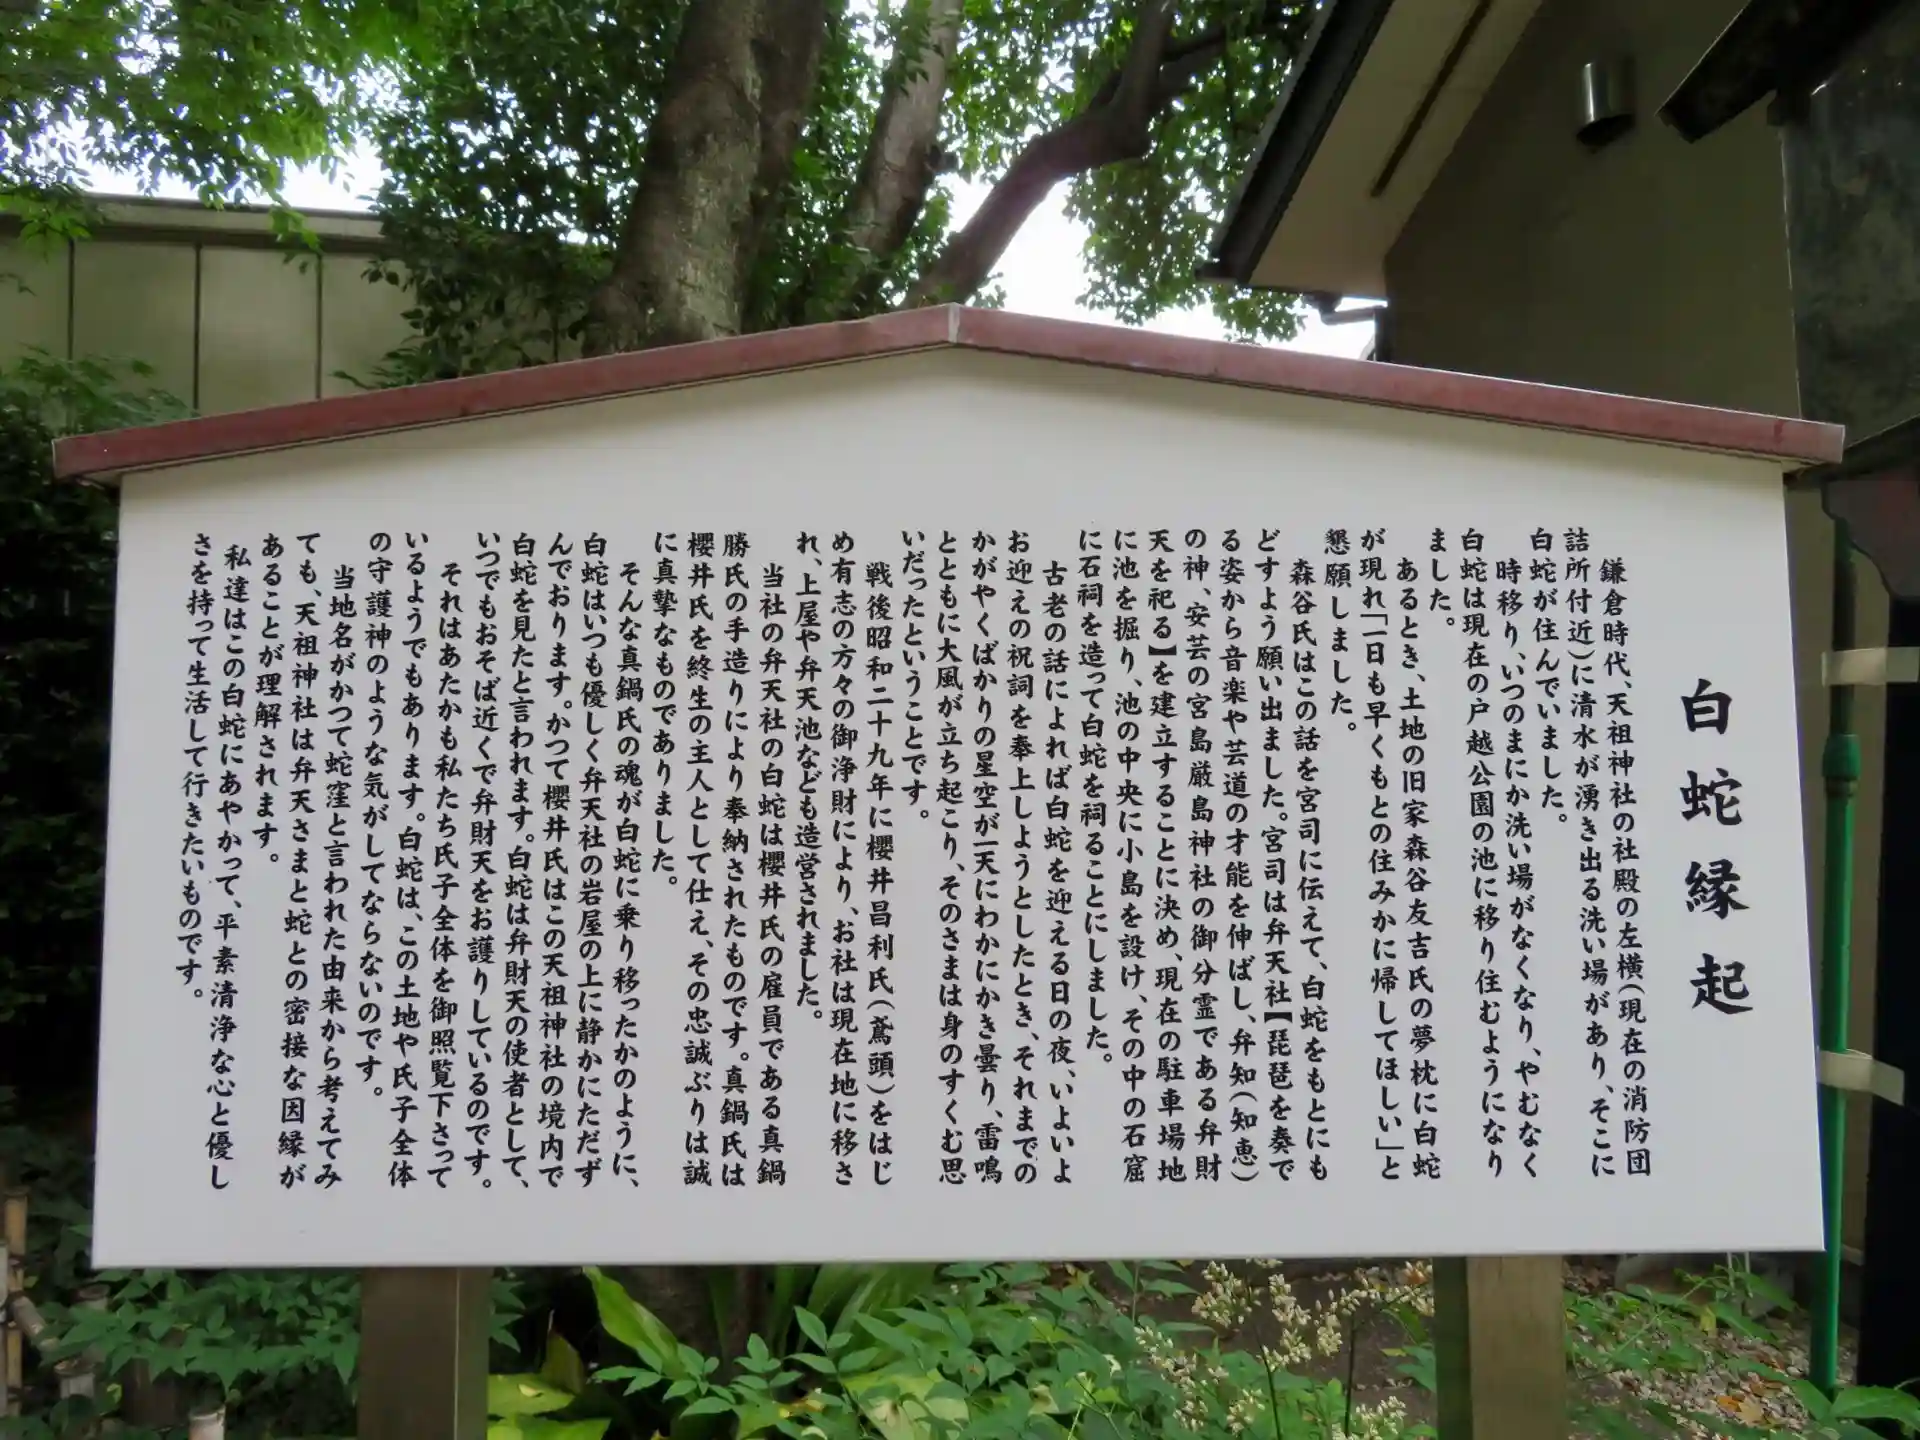 白蛇縁起
鎌倉時代、天祖神社の社殿の左横(現在の消防団
詰所付近)に清水が湧き出る洗い場があり、そこに
白蛇が住んでいました。
時移り、いつのまにか洗い場がなくなり、やむなく
白蛇は現在の戸越公園の池に移り住むようになり
ました。
あるとき、土地の旧家森谷友吉氏の夢枕に白蛇
が現れ「一日も早くもとの住みかに帰してほしい」と
懇願しました。
森谷氏はこの話を宮司に伝えて、白蛇をもとにも
どすよう願い出ました。宮司は弁天社【琵琶を奏で
る姿から音楽や芸道の才能を伸ばし、弁知(知恵)
の神、安芸の宮島厳島神社の御分霊である弁財
天を祀る】を建立することに決め、現在の駐車場地
に池を掘り、池の中央に小島を設け、その中の石窟
に石祠を造って白蛇を祠ることにしました。
古老の話によれば白蛇を迎える日の夜、いよいよ
お迎えの祝詞を奉上しようとしたとき、それまでの
かがやくばかりの星空が一天にわかにかき曇り、雷鳴
とともに大風が立ち起こり、そのさまは身のすくむ思
いだったということです。
戦後昭和二十九年に櫻井昌利氏(鳶頭)をはじ
め有志の方々の御浄財により、お社は現在地に移さ
れ、上屋や弁天池なども造営されました。
当社の弁天社の白蛇は櫻井氏の雇員である真鍋
勝氏の手造りにより奉納されたものです。真鍋氏は
櫻井氏を終生の主人として仕え、その忠誠ぶりは誠
に真摯なものでありました。
そんな真鍋氏の魂が白蛇に乗り移ったかのように、
白蛇はいつも優しく弁天社の岩屋の上に静かにただず
んでおります。かつて櫻井氏はこの天祖神社の境内で
白蛇を見たと言われます。白蛇は弁財天の使者として、
いつでもおそば近くで弁財天をお護りしているのです。
それはあたかも私たち氏子全体を御照覧下さって
いるようでもあります。白蛇は、この土地や氏子全体
の守護神のような気がしてならないのです。
当地名がかつて蛇窪と言われた由来から考えてみ
ても、天祖神社は弁天さまと蛇との密接な因縁が
あることが理解されます。
私達はこの白蛇にあやかって、平素清浄な心と優し
さを持って生活して行きたいものです。